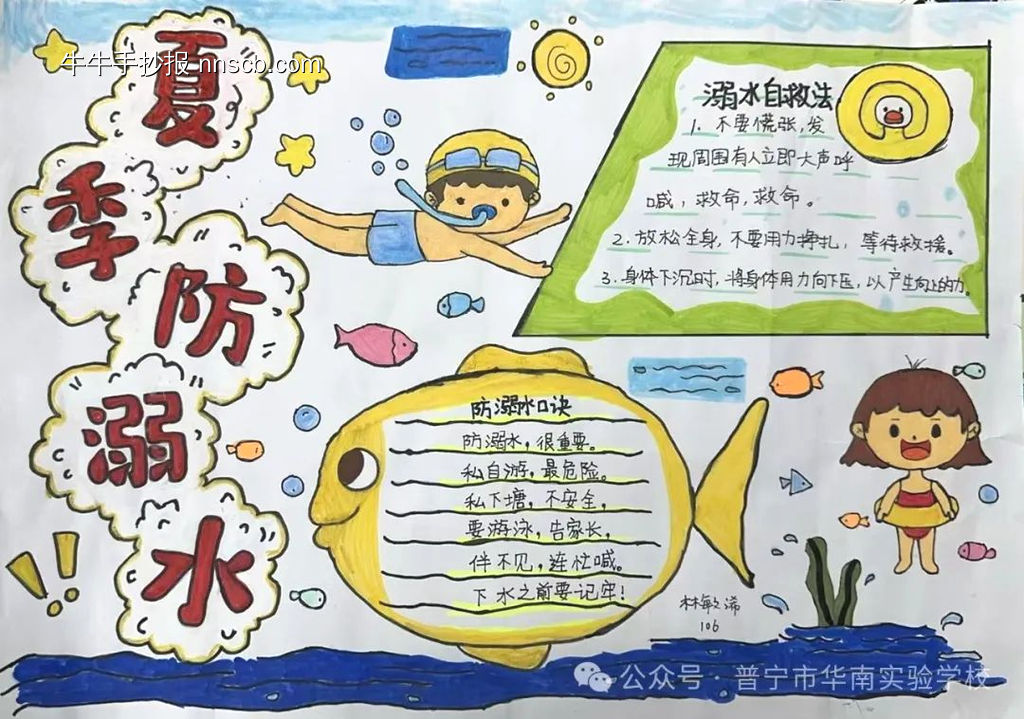 牛牛手抄报 nnscb.com
夏
季
防
溺
水
溺水自救法
1. 不要慌张,发
现周围有人立即大声呼
喊,救命,救命。
2. 放松全身,不要用力挣扎,等待救援。
3. 身体下沉时,将身体用力向下压,以产生向上的力。
防溺水口诀
防溺水,很重要。
私自游,最危险。
私下塘,不安全,
要游泳,告家长,
伴不见,连忙喊。
下水之前要记牢!
林敏浠
106
公众号·普宁市华南实验学校